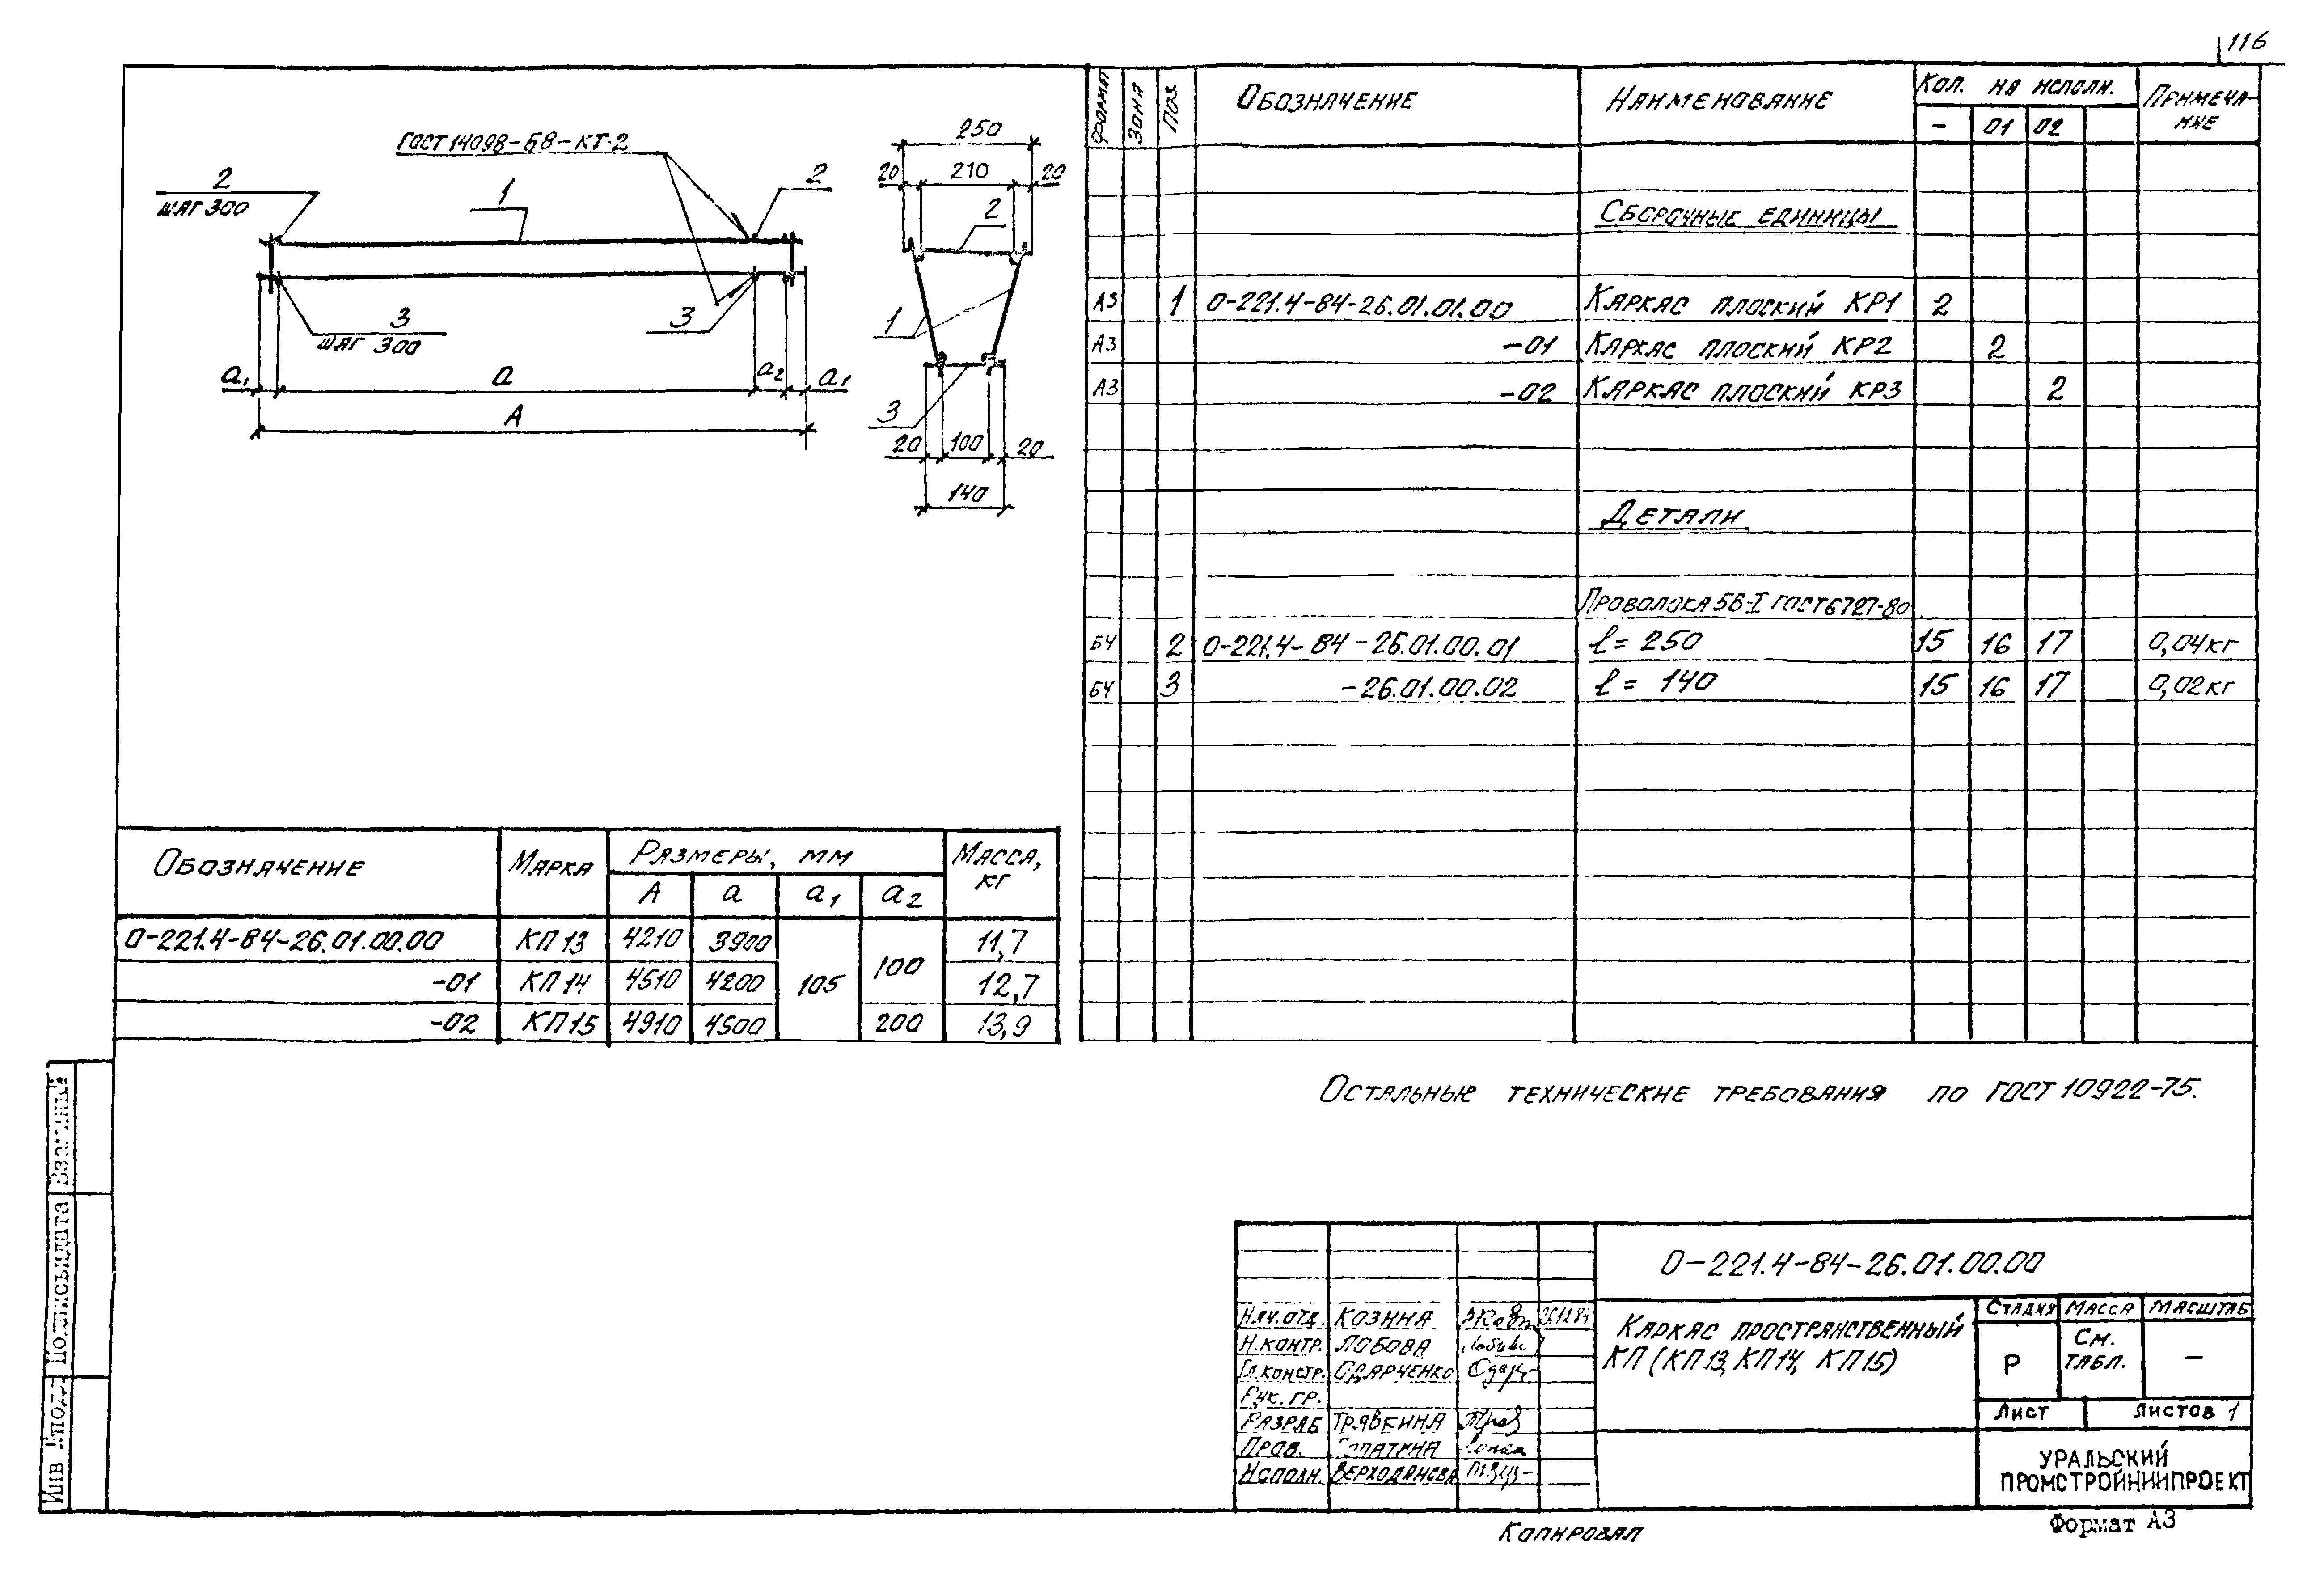 116
ГОСТ 14098-68-КТ-2
2
ШАГ 300
1
2
3
ШАГ 300
3
a1 a a2 a1
А
250
20 210 20
2
1
3
20 100 20
140
ФОРМАТ ЗОНА ПОЗ ОБОЗНАЧЕНИЕ НАИМЕНОВАНИЕ КОЛ. НА ИСПОЛН. ПРИМЕЧА-
НИЕ
- 01 02
СБОРОЧНЫЕ ЕДИНИЦЫ
А3 1 0-221.4-84-26.01.01.00 КАРКАС ПЛОСКИЙ КР1 2
А3 -01 КАРКАС ПЛОСКИЙ КР2 2
А3 -02 КАРКАС ПЛОСКИЙ КР3 2
ДЕТАЛИ
ПРОВОЛОКА 5В-I ГОСТ 6727-80
БЧ 2 0-221.4-84-26.01.00.01 ℓ= 250 15 16 17 0,04кг
БЧ 3 -26.01.00.02 ℓ= 140 15 16 17 0,02кг
ОБОЗНАЧЕНИЕ МАРКА РАЗМЕРЫ, ММ МАССА,
КГ
А a a1 a2
0-221.4-84-26.01.00.00 КП 13 4210 3900 105 100 11,7
-01 КП 14 4510 4200 12,7
-02 КП 15 4910 4500 200 13,9
ОСТАЛЬНЫЕ ТЕХНИЧЕСКИЕ ТРЕБОВАНИЯ ПО ГОСТ 10922-75.
0-221.4-84-26.01.00.00
НАЧ.ОТД. КОЗИНА
Н.КОНТР. ЛОБОВА
ГЛ.КОНСТР. ОДАРЧЕНКО
РУК. ГР.
РАЗРАБ ТРЯВКИНА
ПРОВ.
ИСПОЛН.
КАРКАС ПРОСТРАНСТВЕННЫЙ
КП (КП 13, КП 14, КП 15)
СТАДИЯ МАССА МАСШТАБ
Р СМ.
ТАБЛ. —
ЛИСТ ЛИСТОВ 1
УРАЛЬСКИЙ
ПРОМСТРОЙНИИПРОЕКТ
КОПИРОВАЛ
Формат А3